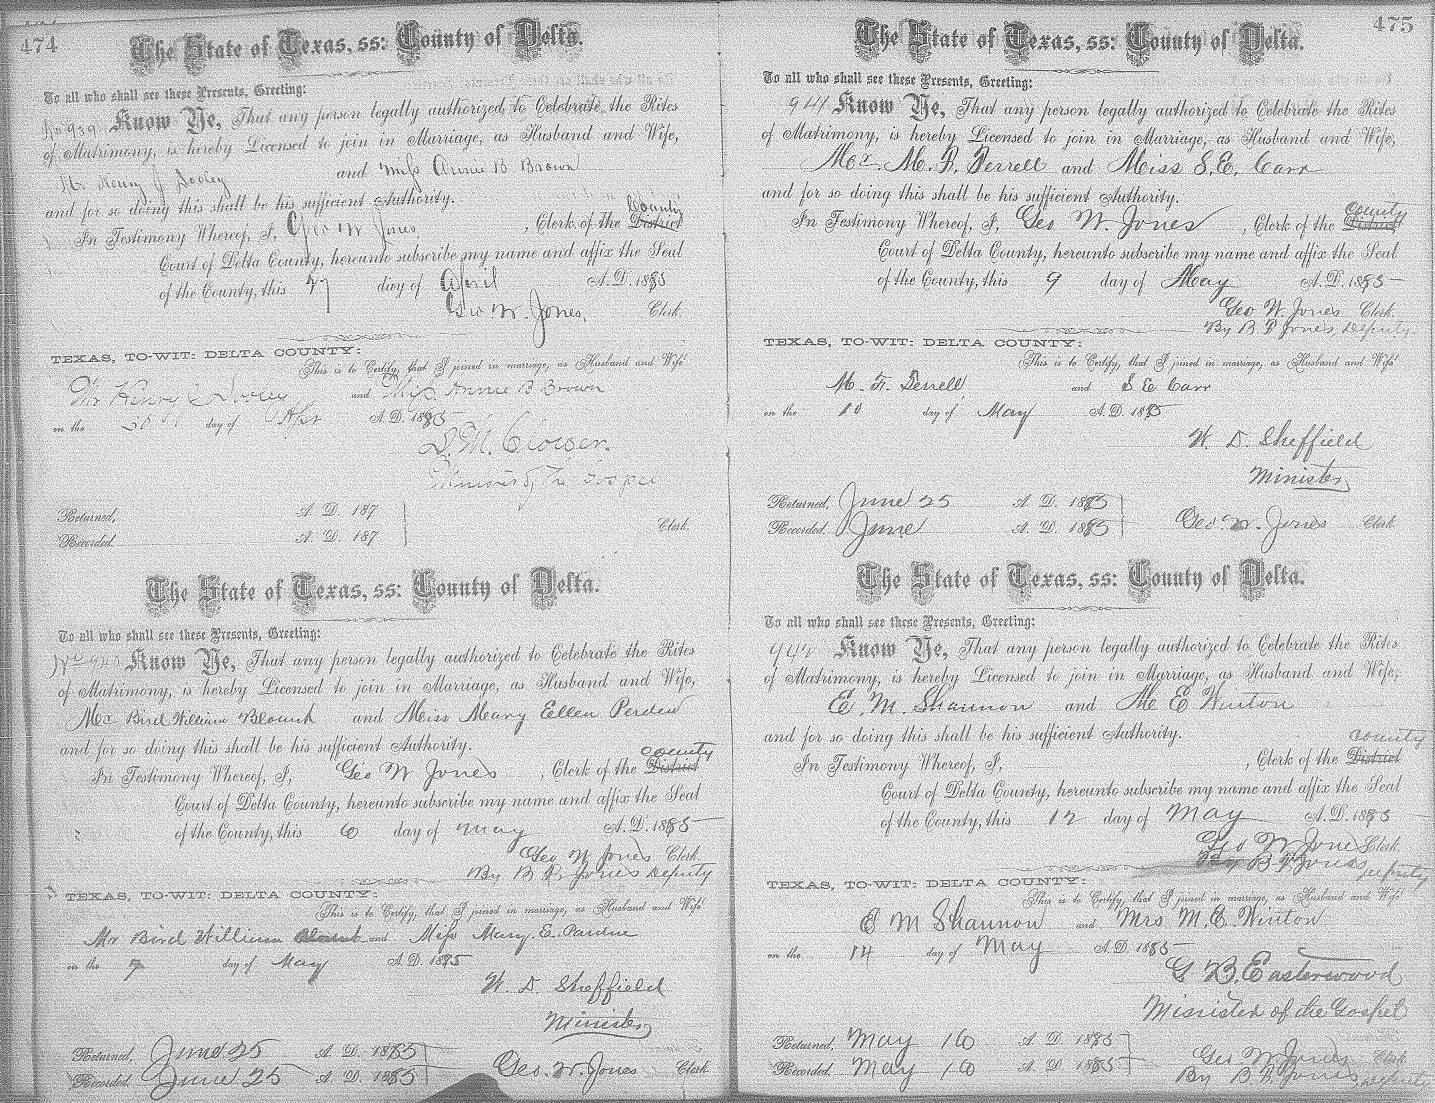 474
The State of Texas, ss: County of Delta.
To all who shall see these Presents, Greeting:
No 939 Know Ye, That any person legally authorized to Celebrate the Rites
of Matrimony, is hereby Licensed to join in Marriage, as Husband and Wife,
Mr Henry J Dooley and Miss Annie B Brown
and for so doing this shall be his sufficient Authority.
In Testimony Whereof, I, Geo W Jones, Clerk of the County District
Court of Delta County, hereunto subscribe my name and affix the Seal
of the County, this 27 day of April A.D. 1885
Geo. W. Jones, Clerk.
TEXAS, TO-WIT: DELTA COUNTY:
This is to Certify, that I joined in marriage, as Husband and Wife
Mr Henry J Dooley and Miss Annie B Brown
on the 30 day of Apr A.D. 1885
D. M. Crower.
Minister of The Gospel
Returned, A. D. 187
Recorded. A. D. 187 Clerk.
The State of Texas, ss: County of Delta.
To all who shall see these Presents, Greeting:
No 940 Know Ye, That any person legally authorized to Celebrate the Rites
of Matrimony, is hereby Licensed to join in Marriage, as Husband and Wife,
Mr Bird William Blount and Miss Mary Ellen Perdew
and for so doing this shall be his sufficient Authority.
In Testimony Whereof, I, Geo W Jones, Clerk of the County District
Court of Delta County, hereunto subscribe my name and affix the Seal
of the County, this 6 day of May A.D. 1885
Geo W Jones Clerk.
By B F Jones Deputy
TEXAS, TO-WIT: DELTA COUNTY:
This is to Certify, that I joined in marriage, as Husband and Wife
Mr Bird William Blount and Miss Mary. E. Pardue
on the 7 day of May A.D. 1885
W. D. Sheffield
Minister
Returned, June 25 A. D. 1885
Recorded. June 25 A. D. 1885 Geo. W. Jones Clerk
475
The State of Texas, ss: County of Delta.
To all who shall see these Presents, Greeting:
941 Know Ye, That any person legally authorized to Celebrate the Rites
of Matrimony, is hereby Licensed to join in Marriage, as Husband and Wife,
Mr. M. F. Derrell and Miss S. E. Carr
and for so doing this shall be his sufficient Authority.
In Testimony Whereof, I, Geo W. Jones, Clerk of the County District
Court of Delta County, hereunto subscribe my name and affix the Seal
of the County, this 9 day of May A.D. 1885
Geo W. Jones Clerk.
By B F Jones, Deputy.
TEXAS, TO-WIT: DELTA COUNTY:
This is to Certify, that I joined in marriage, as Husband and Wife
M. F. Derrell and S E Carr
on the 10 day of May A.D. 1885
W. D. Sheffield
Minister
Returned, June 25 A. D. 1885
Recorded. June A. D. 1885 Geo. W. Jones Clerk.
The State of Texas, ss: County of Delta.
To all who shall see these Presents, Greeting:
942 Know Ye, That any person legally authorized to Celebrate the Rites
of Matrimony, is hereby Licensed to join in Marriage, as Husband and Wife,
E. M. Shannon and M E Winton
and for so doing this shall be his sufficient Authority.
In Testimony Whereof, I, , Clerk of the County District
Court of Delta County, hereunto subscribe my name and affix the Seal
of the County, this 12 day of May A.D. 1885
Geo W Jones Clerk.
By B F Jones, Deputy
TEXAS, TO-WIT: DELTA COUNTY:
This is to Certify, that I joined in marriage, as Husband and Wife
E M Shannon and Mrs M. E Winton
on the 14 day of May A.D. 1885
G B. Easterwood
Minister of the Gospel
Returned, May 16 A. D. 1885
Recorded. May 16 A. D. 1885 Geo W Jones Clerk
By B. F. Jones, Deputy